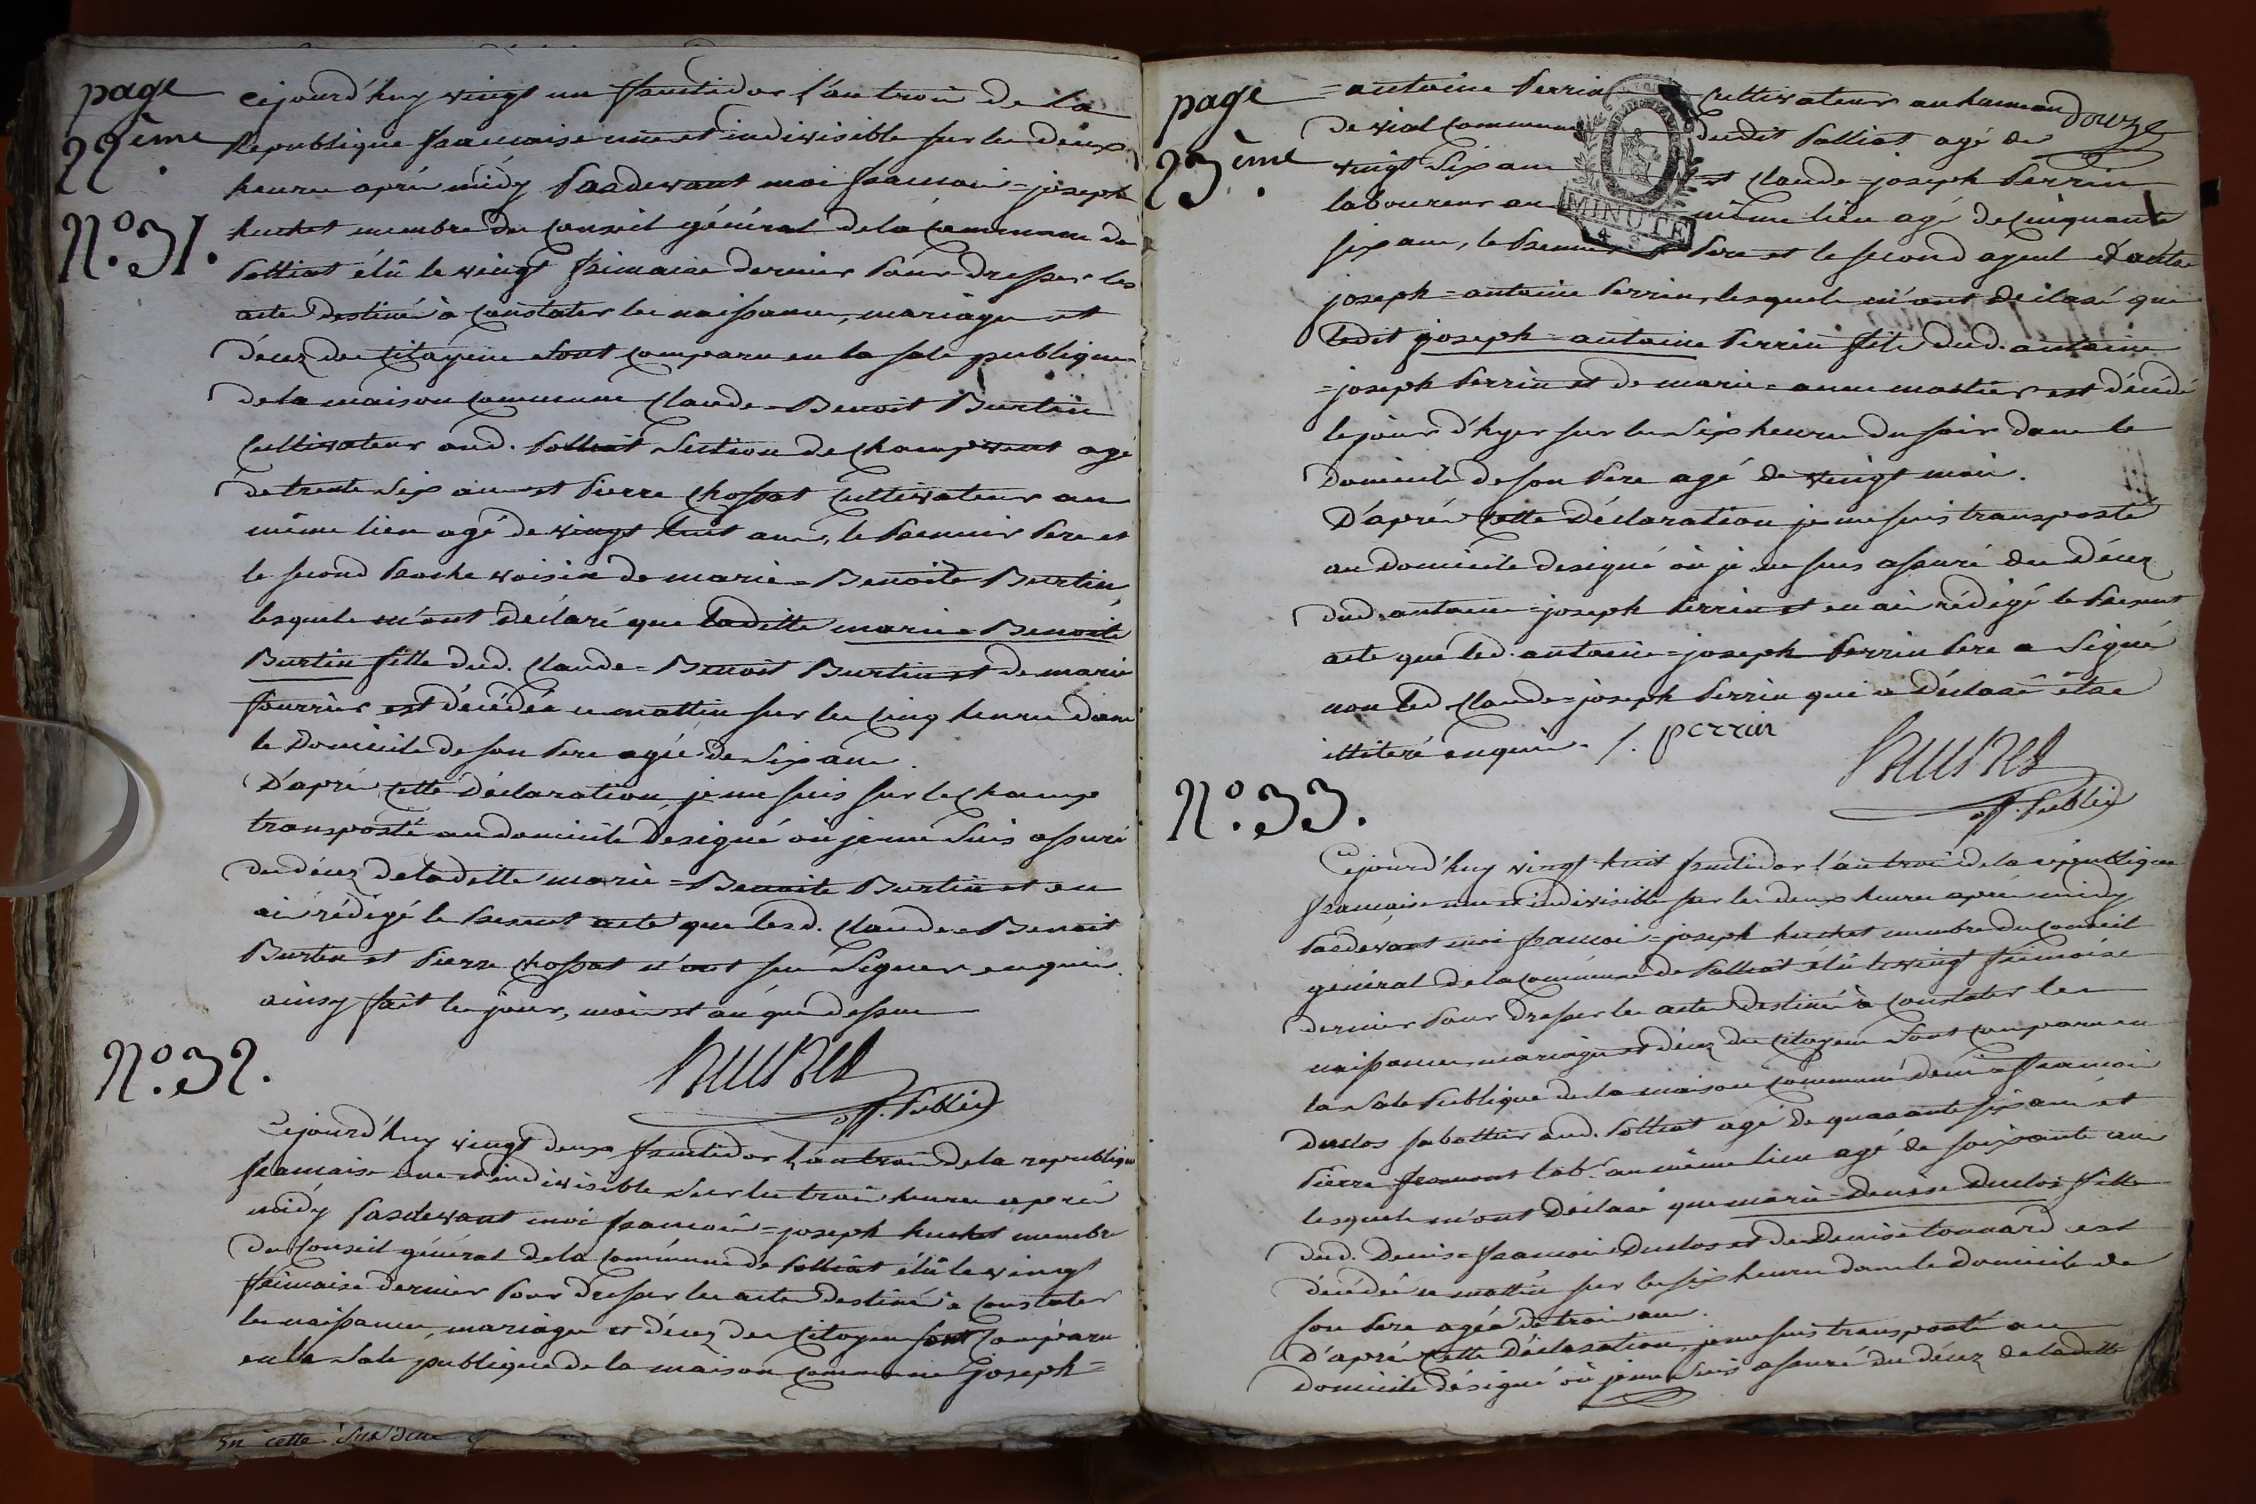 page
22ème
N.º 31.
Cejourd'huy vingt un fructidor l'an trois de la
Republique francaise une et indivisible sur les deux
heures après midy Pardevant moi francois=joseph
huchet membre du Conseil général de la Commune de
Polliat élû le vingt frimaire dernier Pour dresser les
actes destinés à Constater les naissances, mariages et
décez des Citoyens sont comparu en la sale publique
de la maison commune Claude=Benoit Burtin
Cultivateur aud. Polliat Section de Champvent agé
de trente six ans et Pierre Chossat Cultivateur au
même lieu agé de vingt huit ans, le Premier Pere et
le second Proche voisin de marie=Benoite Burtin
lesquels m'ont déclaré que laditte marie=Benoite
Burtin fille dud. Claude=Benoit Burtin et de marie
fourrier est décédée ce mattin sur les Cinq heures dans
le Domicile de son Pere agée de six ans.
D'après cette déclaration, je me suis sur le champ
transporté au domicile designé où je me suis assuré
du décez de ladette marie=Benoite Burtin et en
ai rédigé le Present acte que lesd. Claude=Benoit
Burtin et Pierre Chossat n'ont sçu Signer enquis.
ainsy fait les jour, mois et an que dessus
huchet
off. Public
N.º 32.
Cejourd'huy vingt deux fructidor l'an trois de la republique
francaise une et indivisible sur les trois heures après
midy Pardevant moi francois=joseph huchet membre
du Conseil général de la Commune de Polliat élû le vingt
frimaire dernier Pour dresser les actes destinés à Constater
les naissances, mariages et décez des Citoyens sont comparu
en la sale publique de la maison commune joseph=
En cette
page
23ème
douze
=antoine Perrin Cultivateur au hameau
de vial commune dudit Polliat agé de
vingt six ans et Claude=joseph Perrin
laboureur au même lieu agé de Cinquante
MINUTE
six ans, le Premier Pere et le second ayeul d'autre
joseph=antoine Perrin, lesquels m'ont déclaré que
ledit joseph=antoine Perrin fils dud. antoine
=joseph Perrin et de marie=anne mortier est décédé
le jour d'hyer sur les six heures du soir dans le
Domicile de son Pere agé de vingt mois.
D'après cette déclaration je me suis transporté
au Domicile designé où je me suis assuré du Décez
dud. antoine=joseph Perrin et en ai rédigé le Present
acte que led. antoine=joseph Perrin Pere a signé
non led Claude=joseph Perrin qui a déclaré être
illiteré enquis. j. perrin
huchet
off. Public
N.º 33.
Cejourd'huy vingt huit fructidor l'an trois de la république
francaise une et indivisible sur les deux heures après midy
Pardevant moi francois=joseph huchet membre du Conseil
général de la Commune de Polliat élû le vingt frimaire
dernier Pour dresser les actes destinés à Constater les
naissances, mariages et décez des Citoyens sont comparu en
la sale Publique de la maison commune denis=francois
Duclos sabottier aud. Polliat agé de quarante six ans et
Pierre fromont lab.r au même lieu agé de soixante ans
lesquels m'ont déclaré que marie=Denise Duclos fille
dud. Denis=francois Duclos et de Denise tonnard est
décédée ce mattin sur les six heures dans le Domicile de
son Pere agée de trois ans.
D'après cette déclaration, je me suis transporté au
Domicile désigné où je me suis assuré du décez de ladette